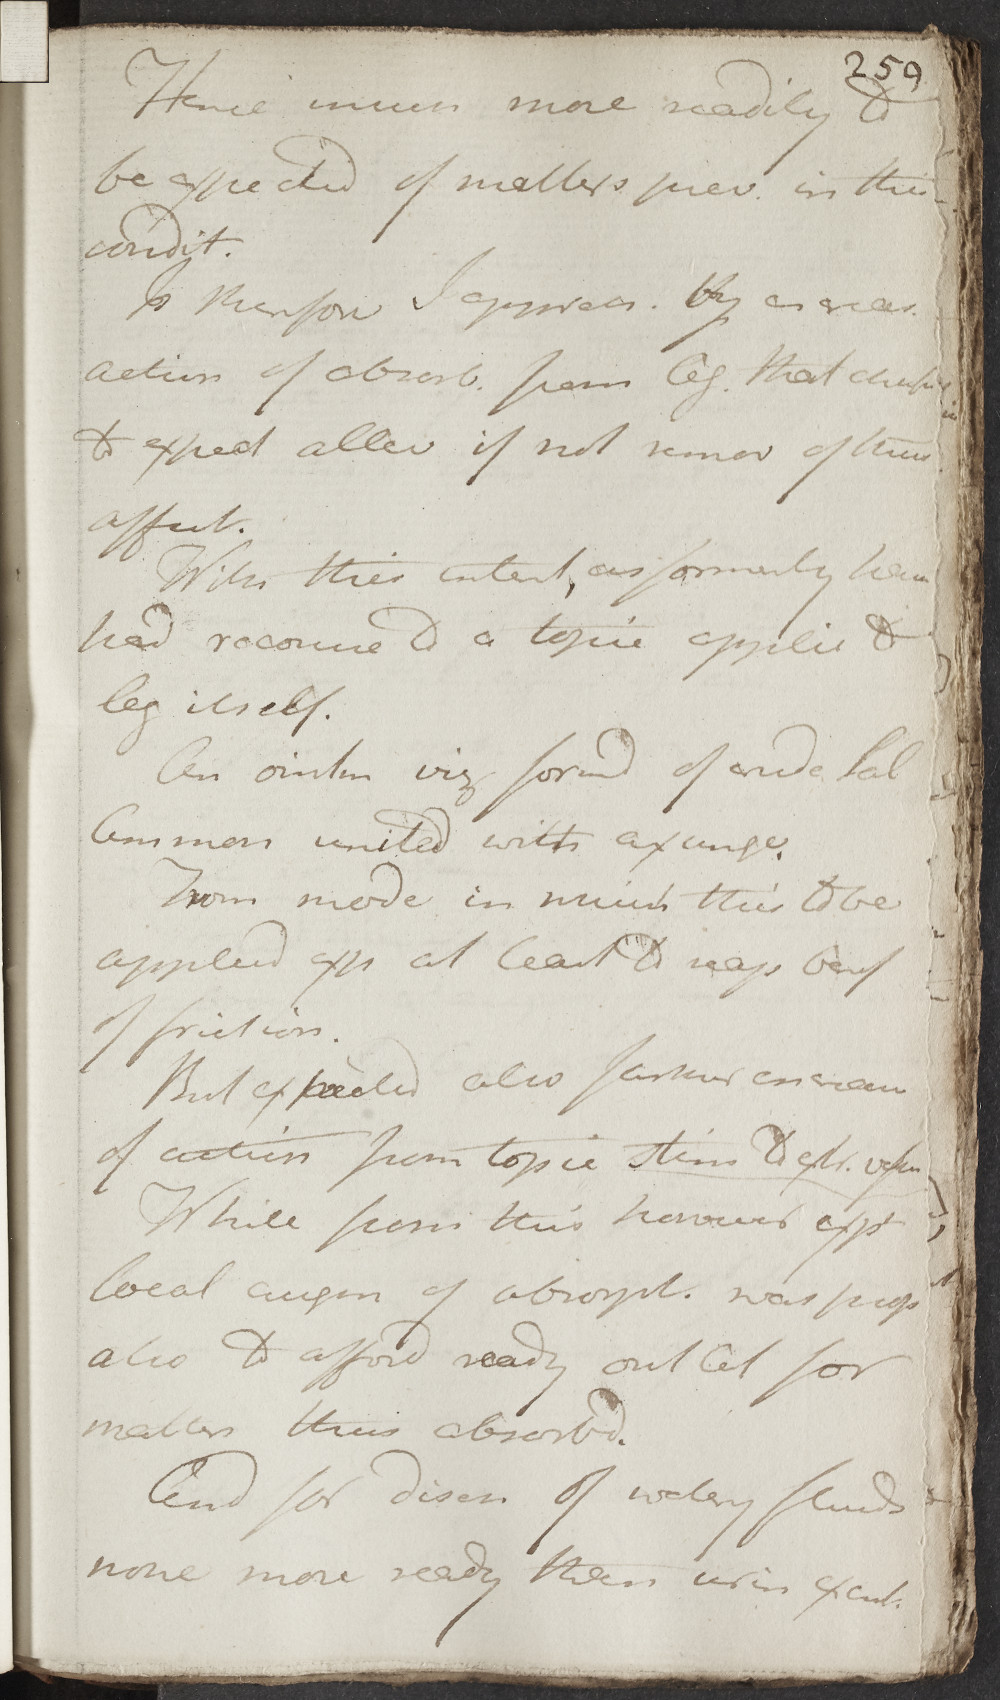 259
Hence much more readily to
be expected of matters prev. in this
condit.
Is therefore I apprehen. By increas.
action of absorb. from leg. that chiefly
to expect allev if not remov of this
affect.
With this intent, as formerly
had recourse to a topic applic to
leg itself.
An ointm viz form'd of crude Sal
Common united with axunge.
From mode in which this to be
applied exp at least to reap benef
of friction.
But expected also farther increase
of action from topic stim to extr. vessn
While from this however expt
local augm of absorpt. was prop
also to afford ready outlet for
matters thus absorb'd.
And for disch of watery fluids
none more ready than urin excret.